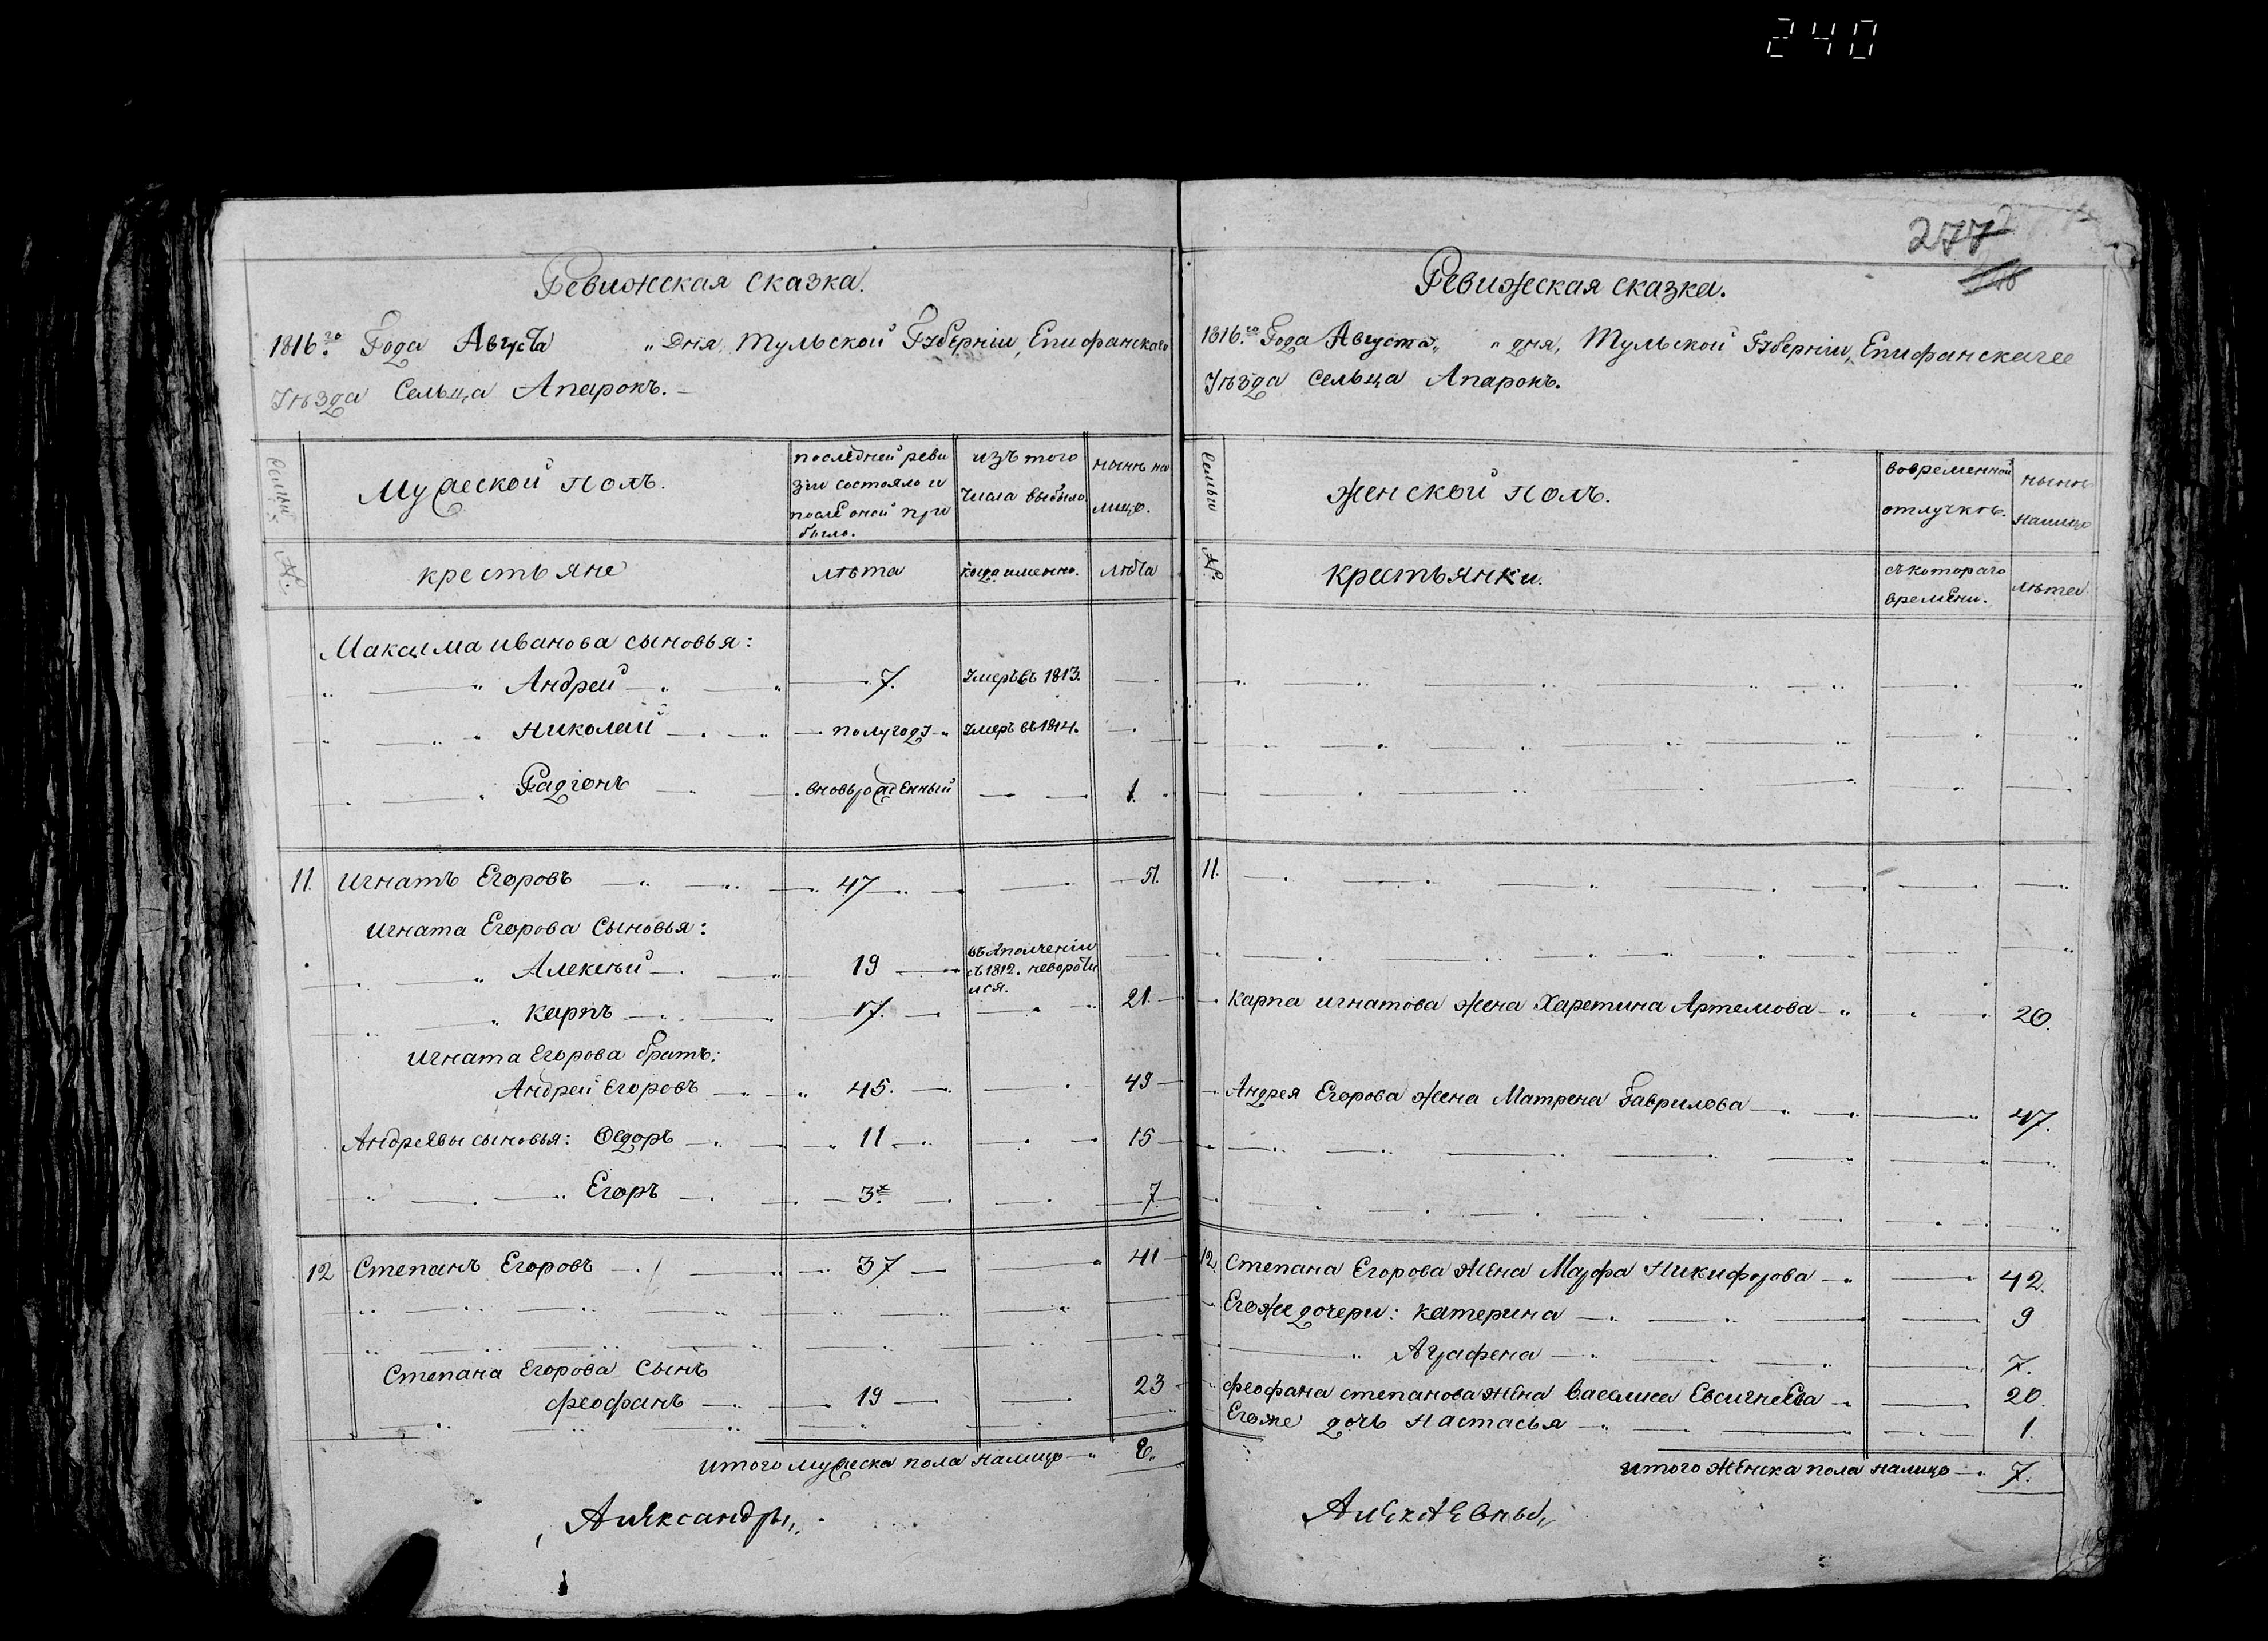 240
277
Ревижская сказка.
1816.го Года Августа „ дня, Тульской Губерніи, Епифанскаго
Уѣзда Сельца Апарокъ.
Семьи №.
Мужеской полъ.
последней реви
зіи состояло и
после оной при
было.
изъ того
числа выбыло
нынѣ на
лицо.
крестьяне
лѣта
когда именно.
лѣта
Максима иванова сыновья:
Андрей 7. Умеръ въ 1813.
Николай полугоду Умеръ въ 1814.
Радіонъ вновьрожденный 1.
11. Игнатъ Егоровъ 47 51.
Игната Егорова Сыновья:
Алексѣй 19 въ Аполченіи
съ 1812. неворотил
ися.
Карпъ 17. 21.
Игната Егорова братъ:
Андрей Егоровъ 45. 49
Андреевы сыновья: Ѳедоръ 11 15
Егоръ 3х. 7.
12 Степанъ Егоровъ 37 41
Степана Егорова Сынъ
феофанъ 19 23
итого мужеска пола налицо 8.
Александры
Ревижская сказка.
1816.го Года Августа „ дня, Тульской Губерніи, Епифанскаго
Уѣзда сельца Апарокъ.
Семьи №.
женской полъ.
вовременной
отлучкѣ.
нынѣ
налицо
крестьянки.
съ котораго
времени.
лѣта
11.
Карпа игнатова жена Харетина Артемова 20.
Андрея Егорова жена Матрена Гаврилова 47.
12. Степана Егорова жена Марфа Никифорова 42.
Егожи дочери: катерина 9
Агафена 7.
феофана степанова жена Василиса Евсигнеева 20.
Егоже дочь Настасья 1.
итого женска пола налицо 7.
Алексѣевны